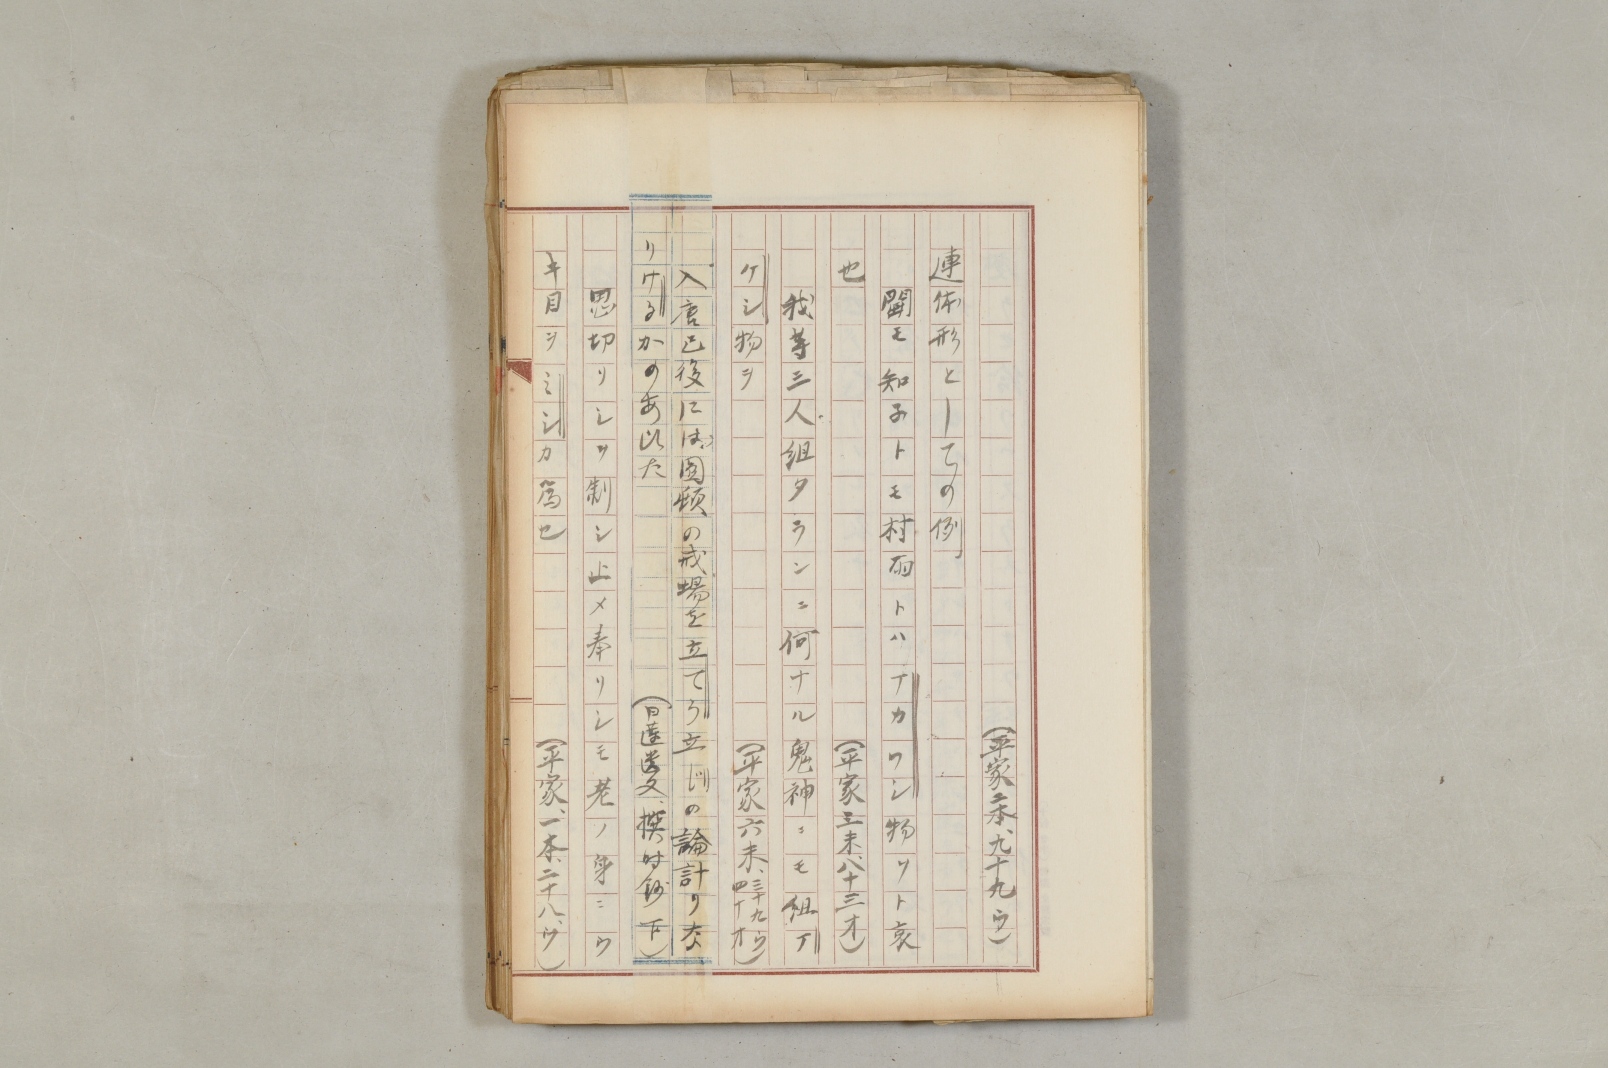 (平家二本、九十九、ウ)
連体形としての例
聞モ知子トモ村雨トハナカワシ物ヲト哀
也　(平家三末、八十三オ)
我等三人組タランニ何ナル鬼神ニモ組テ
ケシ物ヲ　(平家六末、三十九ウ四十オ)
入唐已後には円頓の戒場を立てう立じの論計りな
りけるかのあひた　(日蓮遺文、撰時鈔下)
思切リシヲ制シ止メ奉リシモ老ノ身ニウ
キ目ヲミシカ為也　(平家、一本、二十八、ウ)